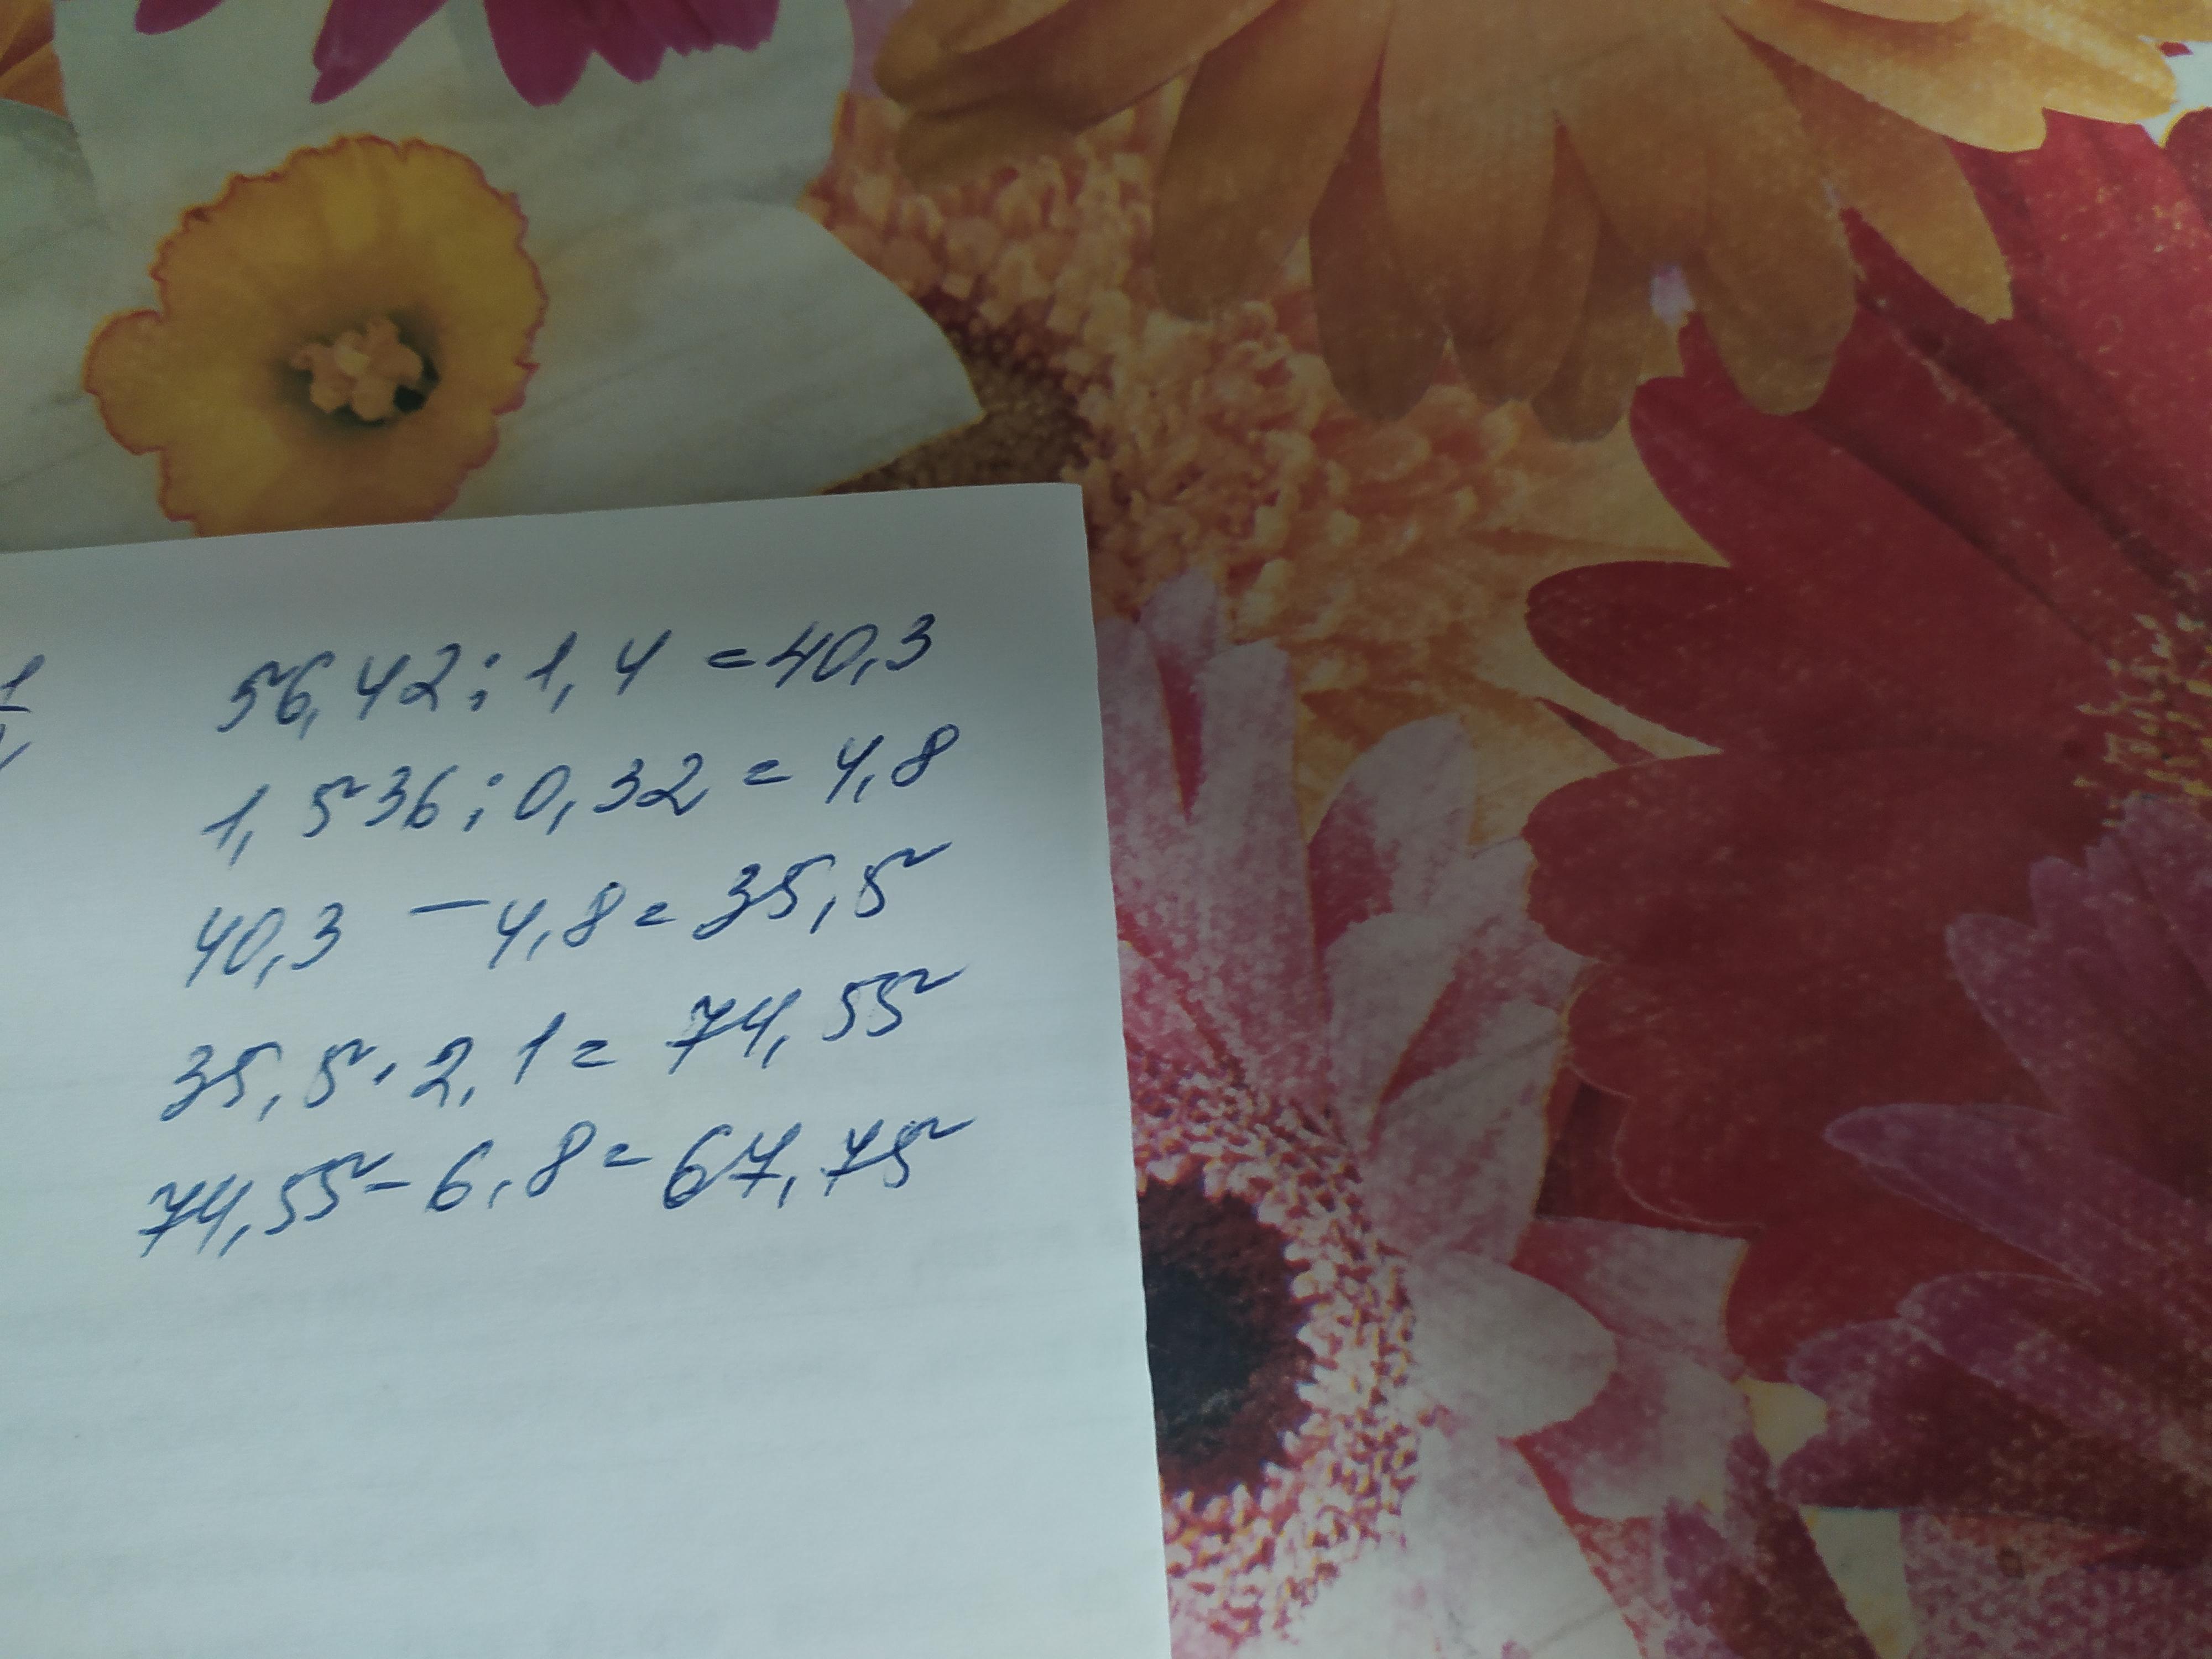 56,42:1,4=40,3
1,536:0,32=4,8
40,3-4,8=35,5
35,5·2,1=74,55
74,55-6,8=67,75